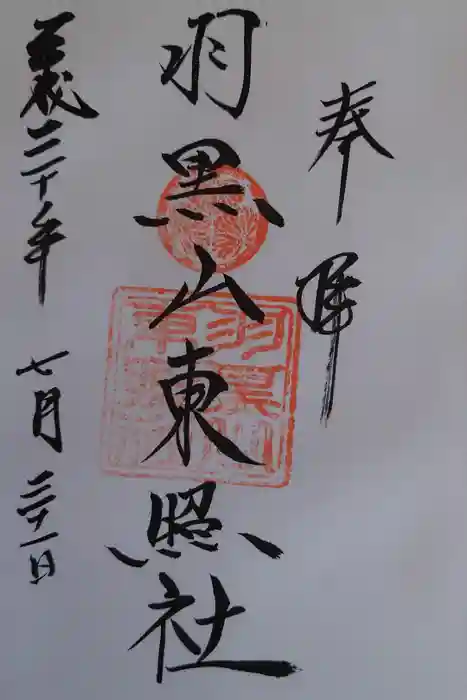 奉拝
羽黒山東照社
平成三十年 七月三十一日